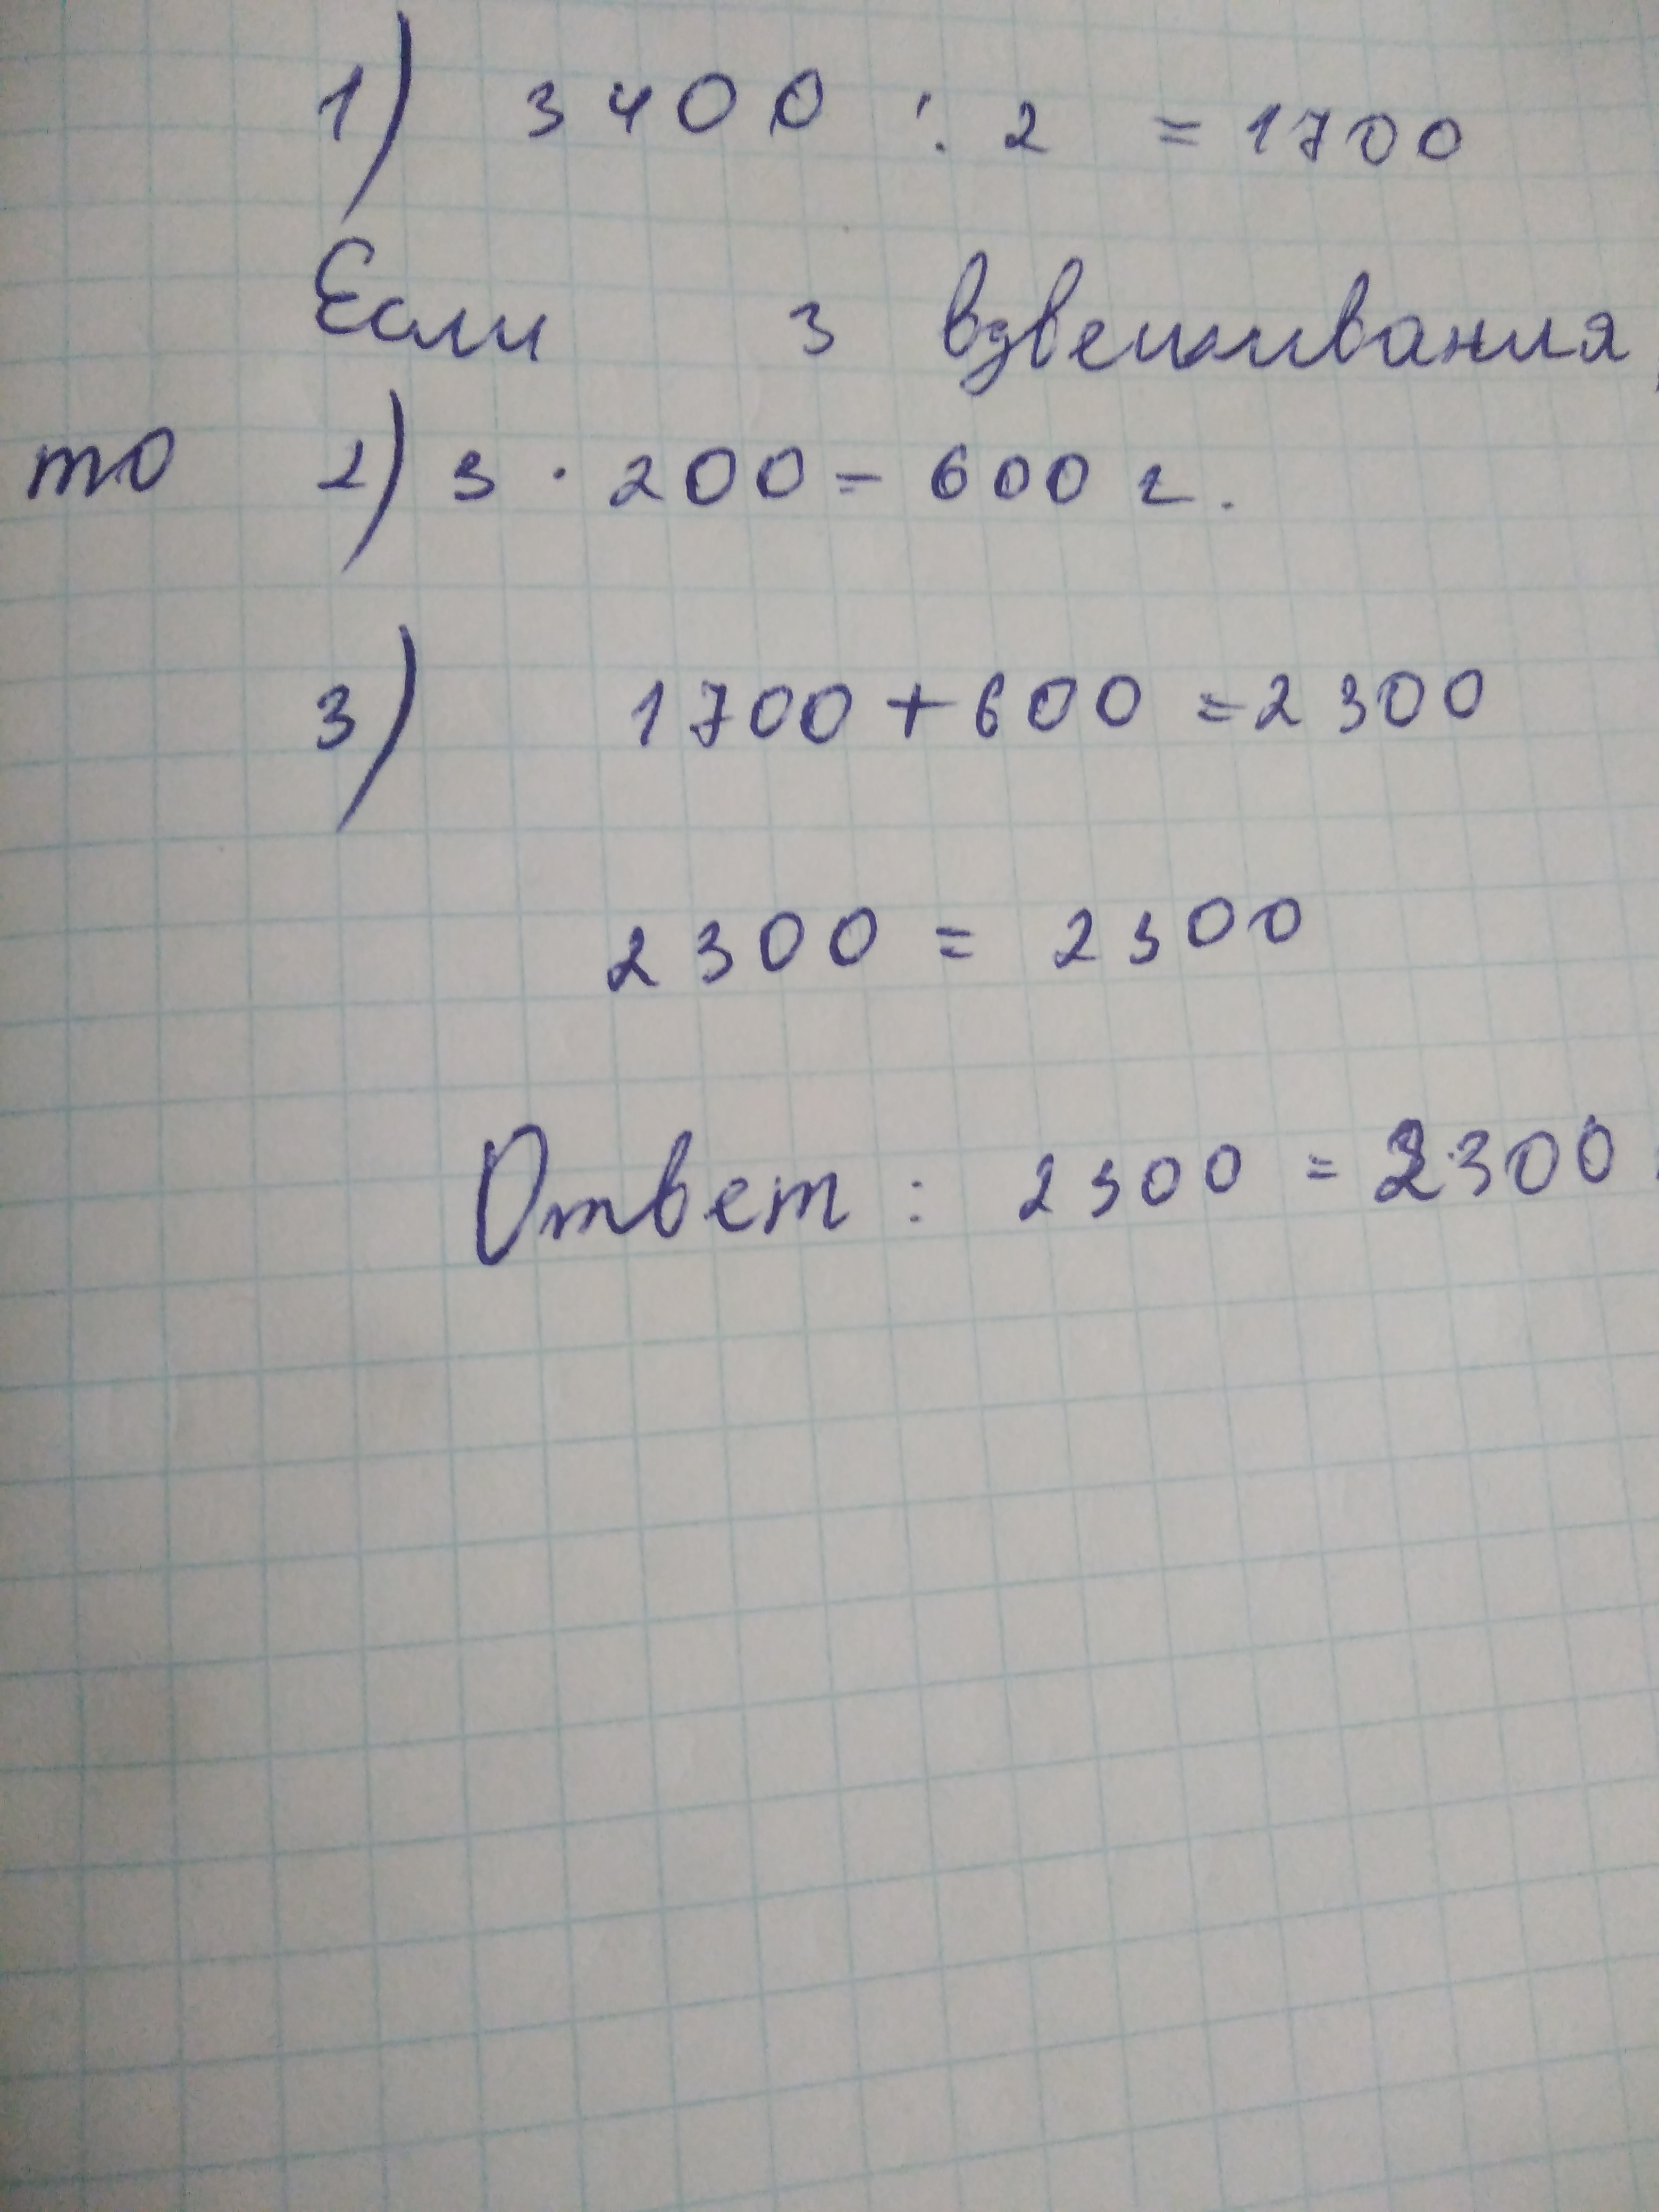 1) 3400 : 2 = 1700
Если 3 взвешивания,
то 2) 3 · 200 = 600 г.
3) 1700 + 600 = 2300
2300 = 2300
Ответ: 2300 = 2300